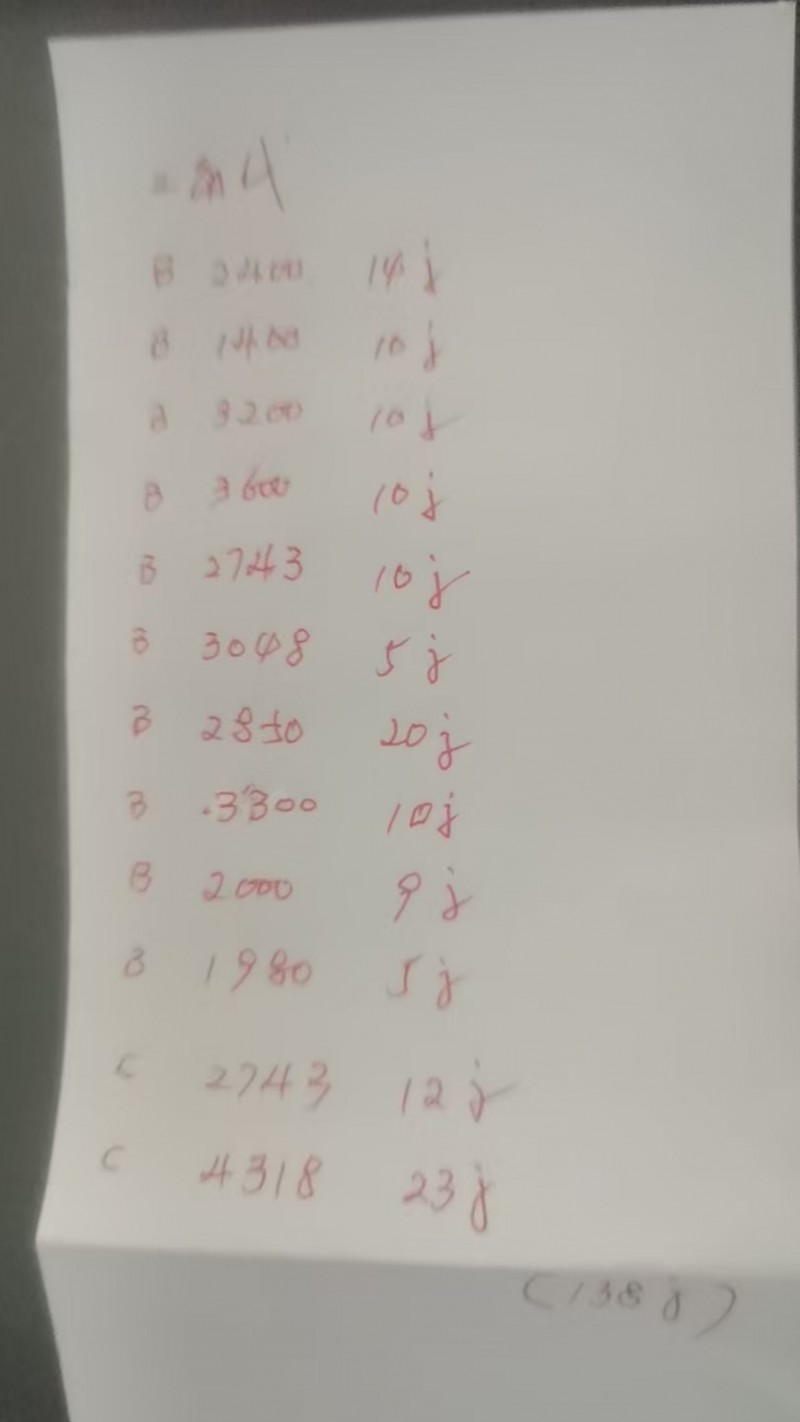 B 2400 14 j
B 1400 10 j
B 3200 10 j
B 3600 10 j
B 2743 10 j
B 3048 5 j
B 2850 20 j
B .3300 10 j
B 2000 9 j
B 1980 5 j
C 2743 12 j
C 4318 23 j
(138 j)